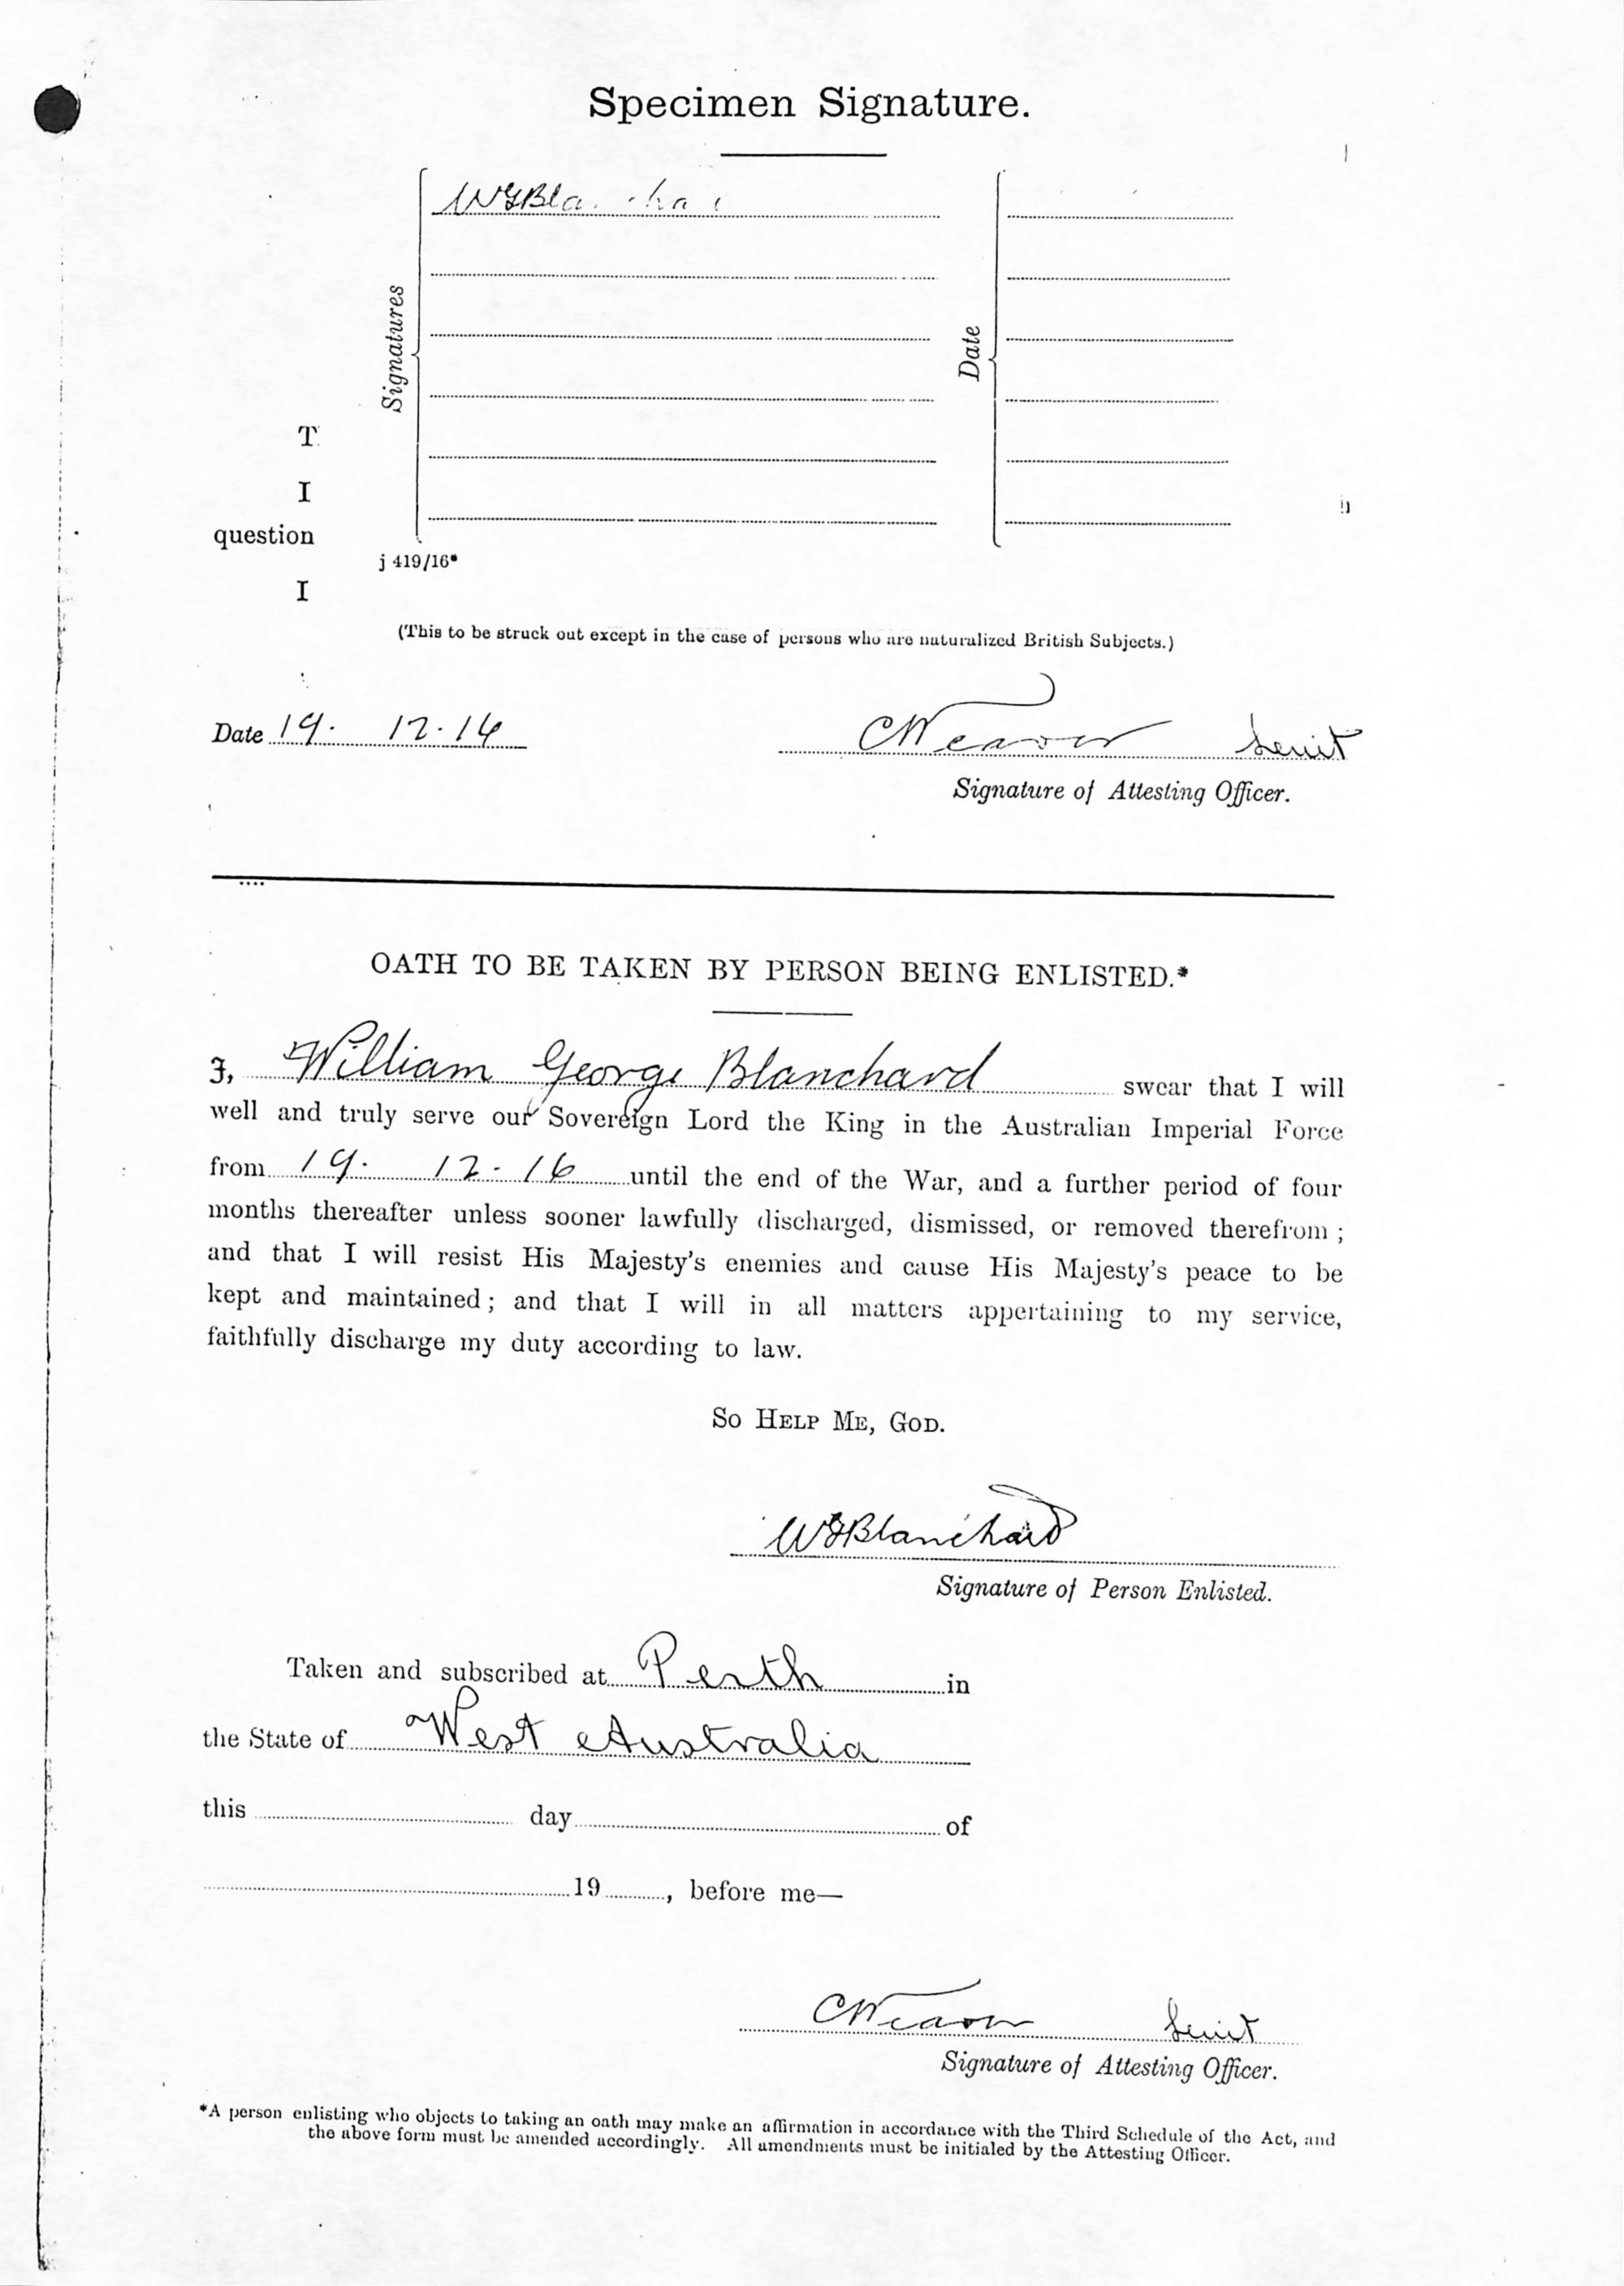 Specimen Signature.
WGBla cha
Signatures
Date
T
I
question
I
j 419/16*
(This to be struck out except in the case of persons who are naturalized British Subjects.)
Date 19. 12.16
CWeaver Lieut
Signature of Attesting Officer.
OATH TO BE TAKEN BY PERSON BEING ENLISTED.*
I, William George Blanchard swear that I will
well and truly serve our Sovereign Lord the King in the Australian Imperial Force
from 19. 12.16 until the end of the War, and a further period of four
months thereafter unless sooner lawfully discharged, dismissed, or removed therefrom;
and that I will resist His Majesty's enemies and cause His Majesty's peace to be
kept and maintained; and that I will in all matters appertaining to my service,
faithfully discharge my duty according to law.
So Help Me, God.
WGBlanchard
Signature of Person Enlisted.
Taken and subscribed at Perth in
the State of West Australia
this day of
19 , before me—
CWeaver Lieut
Signature of Attesting Officer.
*A person enlisting who objects to taking an oath may make an affirmation in accordance with the Third Schedule of the Act, and
the above form must be amended accordingly. All amendments must be initialed by the Attesting Officer.